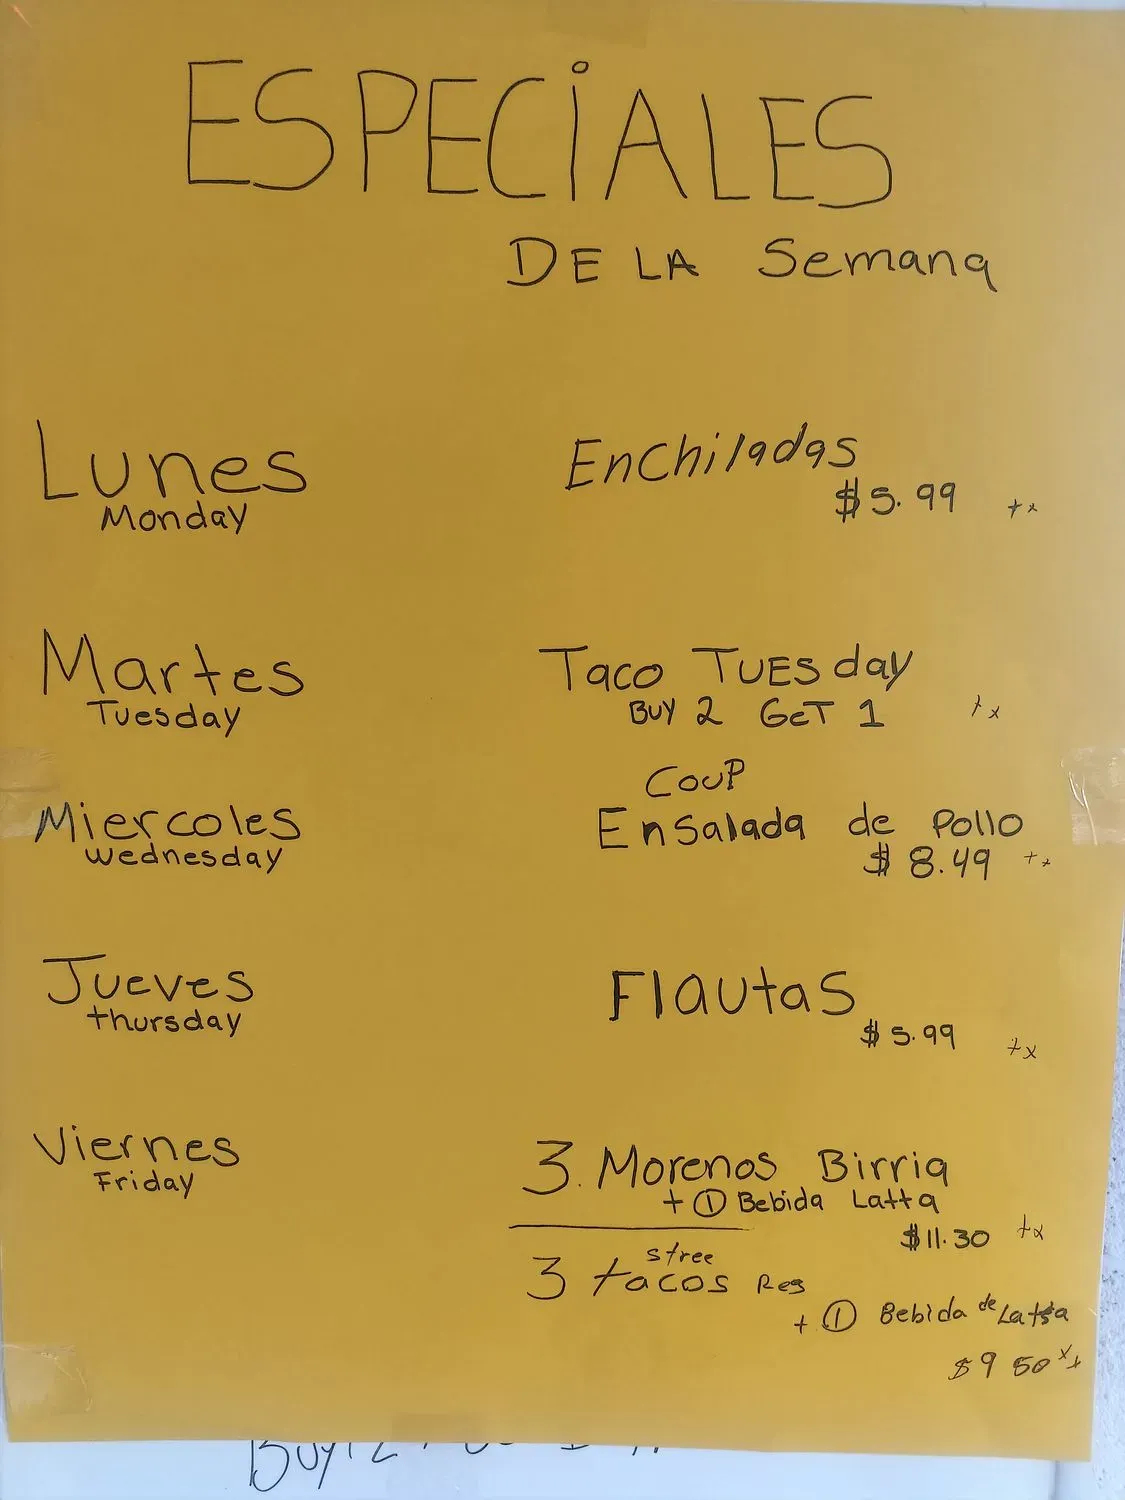 ESPECiALES
DE LA Semana
Lunes
Monday
Enchiladas
$5.99 +x
Martes
Tuesday
Taco TUESday
BUY 2 GeT 1 +x
Miercoles
Wednesday
CouP
Ensalada de Pollo
$8.49 +x
Jueves
thursday
Flautas
$5.99 +x
Viernes
Friday
3. Morenos Birria
+ ① Bebida Latta
$11.30 +x
stree
3 tacos Reg
+ ① Bebida de Latta
$9 50 x+
Buy